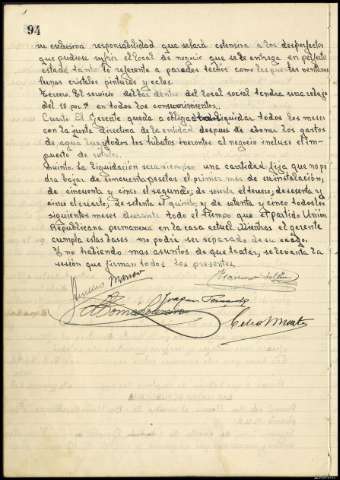 94
su exclusiva responsabilidad que estará estensiva a los desperfectos
que pudiese sufrir el local de negocio que se le entrega en perfecto
estado tanto lo referente a paredes techos como las puertas ventanas
lunas cristales pinturas y etc.
Tercero. El servicio del bar dentro del local social tendra una rebaja
del 10 por % en todas las consumiciones.
Cuarto El Gerente queda a obligado liquidar todos los meses
con la junta Directiva de la entidad despues de abonar los gastos
de agua luz y todos los tributos inerentes al negocio incluso el im-
puesto de
Quinto. La liquidacion sera siempre una cantidad fija que no po-
dra bajar de cincuenta pesetas el primer mes de su instalación,
de cincuenta y cinco el segundo; de sesenta el tercero; de sesenta y
cinco el cuarto; de setenta el quinto; y de setenta y cinco todos los
siguientes meses durante todo el tiempo que el partido Unión
Republicana permanezca en la casa actual. Mientras el gerente
cumpla estas bases no podrá ser separado de su cargo.
Y no habiendo mas asuntos de que tratar, se levanta la
sesión que firman todos los presentes.